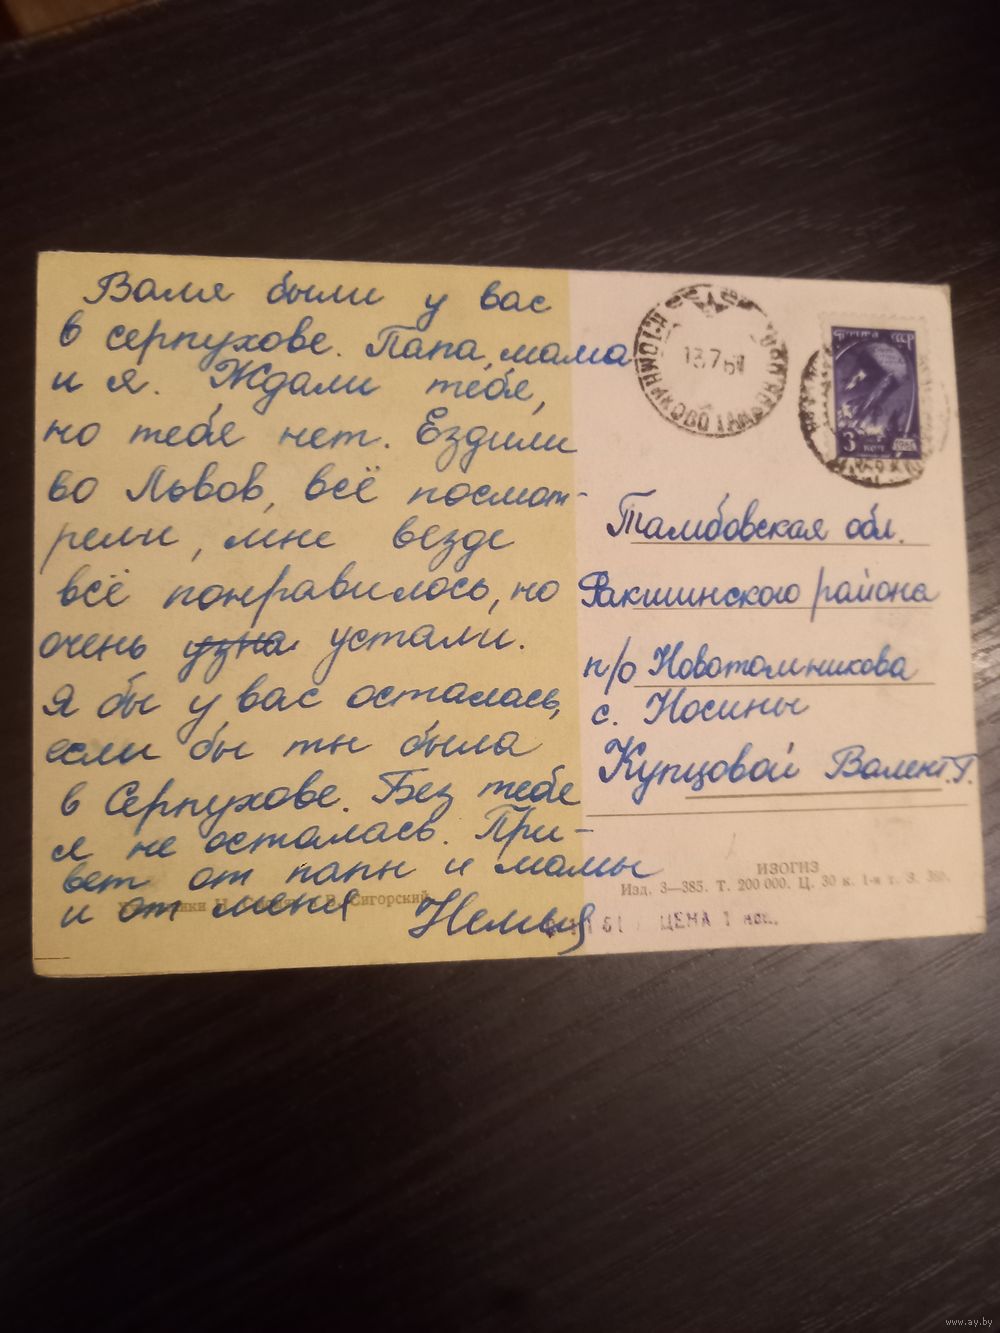 Валя были у вас
в серпухове. Папа, мама
и я. Ждали тебе,
но тебе нет. Ездили
во Львов, всё посмот-
рели, мне везде
всё понравилось, но
очень устали.
я бы у вас осталась,
если бы ты была
в Серпухове. Без тебе
я не осталась. При-
вет от папы и мамы
и от меня
ПОЧТА СССР
3 КОП
1961
13 7 61
Тамбовская обл.
Ракшинского района
п/о Новотомникова
с. Носины
Купцовой Валент. Г.
ИЗОГИЗ
Изд. 3—385. Т. 200 000. Ц. 30 к. 1-я т. З.
61 ЦЕНА 1 коп.
Сигорский
www.ay.by